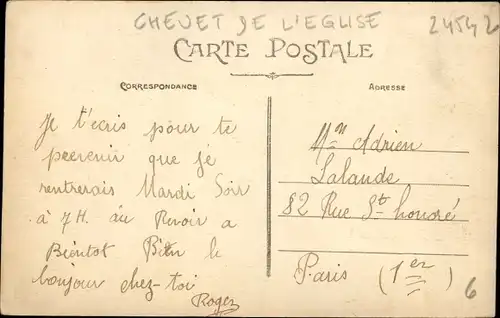 CHEVET DE L'EGLISE
24542
CARTE POSTALE
CORRESPONDANCE
ADRESSE
Je t'ecris pour te
peevenir que je
rentrerais Mardi Soir
à 7H. au Revoir a
Bientot Bien le
bonjour chez-toi
Roger
Mn Adrien
Lalande
82 Rue St honoré
Paris (1er)
6